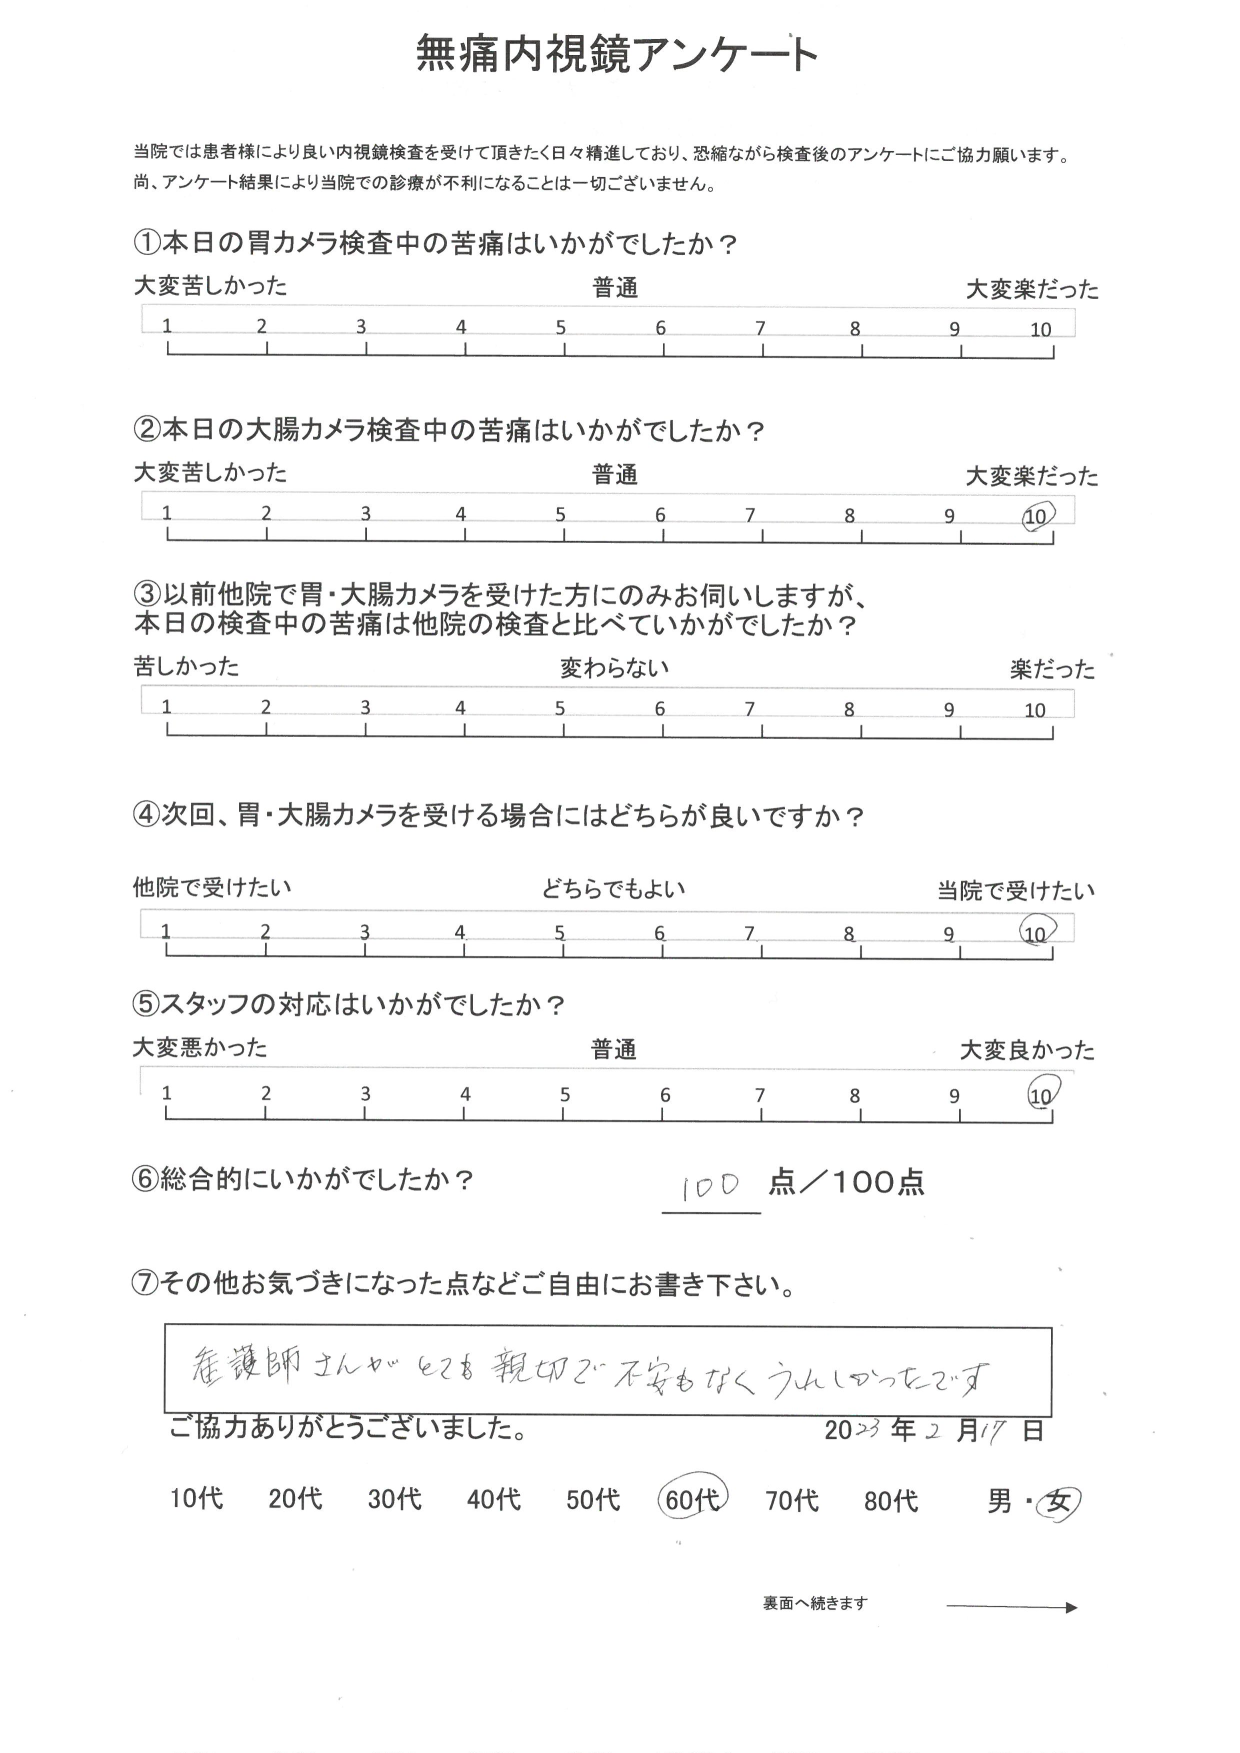 無痛内視鏡アンケート
当院では患者様により良い内視鏡検査を受けて頂きたく日々精進しており、恐縮ながら検査後のアンケートにご協力願います。
尚、アンケート結果により当院での診療が不利になることは一切ございません。
①本日の胃カメラ検査中の苦痛はいかがでしたか？
大変苦しかった 普通 大変楽だった
1 2 3 4 5 6 7 8 9 10
②本日の大腸カメラ検査中の苦痛はいかがでしたか？
大変苦しかった 普通 大変楽だった
1 2 3 4 5 6 7 8 9 10
③以前他院で胃・大腸カメラを受けた方にのみお伺いしますが、
本日の検査中の苦痛は他院の検査と比べていかがでしたか？
苦しかった 変わらない 楽だった
1 2 3 4 5 6 7 8 9 10
④次回、胃・大腸カメラを受ける場合にはどちらが良いですか？
他院で受けたい どちらでもよい 当院で受けたい
1 2 3 4 5 6 7 8 9 10
⑤スタッフの対応はいかがでしたか？
大変悪かった 普通 大変良かった
1 2 3 4 5 6 7 8 9 10
⑥総合的にいかがでしたか？ 100 点／100点
⑦その他お気づきになった点などご自由にお書き下さい。
看護師さんがとても親切で不安もなくうれしかったです
ご協力ありがとうございました。 2023年2月17日
10代 20代 30代 40代 50代 60代 70代 80代 男・女
裏面へ続きます